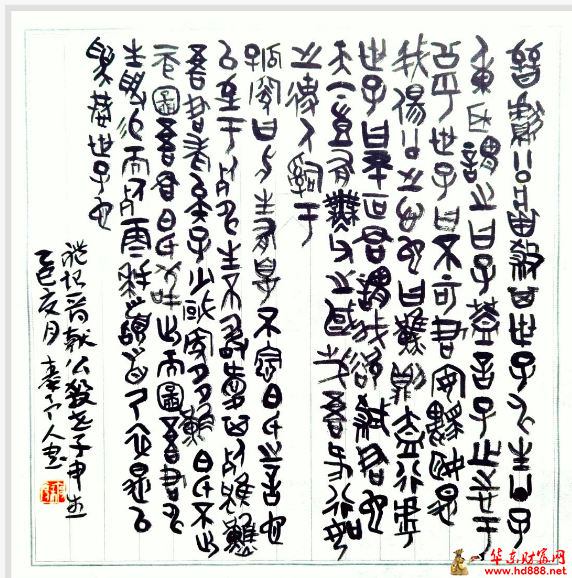 晉獻公將殺其世子申生公子
重耳謂之曰子蓋言子之志于
公乎世子曰不可君安驪姬是
我傷公之心也曰然則蓋行乎
世子曰不可君謂我欲弒君也
天下豈有無父之國哉吾何行如
之使人辭于
狐突曰申生有罪不念伯氏之言也
以至于死申生不敢愛其死雖然
吾君老矣子少國家多難伯氏不出
而圖吾君伯氏苟出而圖吾君申
生受賜而死再拜稽首乃卒是以
為恭世子也
礼記晋献公殺世子申生
乙巳亥月人書
华东财富网
www.hd888.net